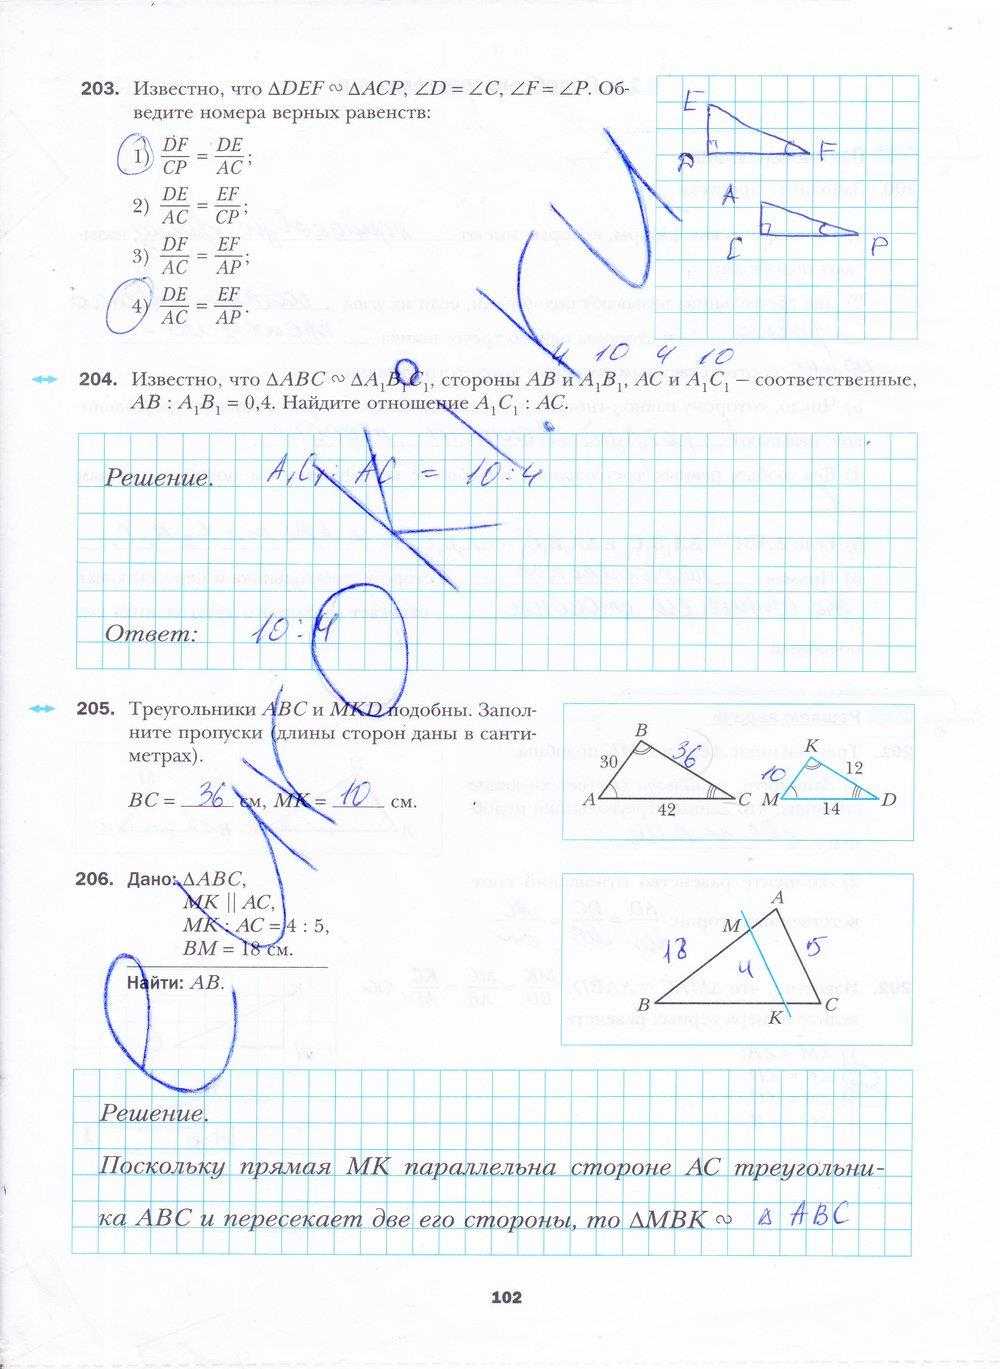 203. Известно, что ΔDEF ∾ ΔACP, ∠D = ∠C, ∠F = ∠P. Об-
ведите номера верных равенств:
1) DF/CP = DE/AC;
2) DE/AC = EF/CP;
3) DF/AC = EF/AP;
4) DE/AC = EF/AP.
E
D
F
A
C
P
4 10 4 10
204. Известно, что ΔABC ∾ ΔA₁B₁C₁, стороны AB и A₁B₁, AC и A₁C₁ – соответственные,
AB : A₁B₁ = 0,4. Найдите отношение A₁C₁ : AC.
Решение. A₁C₁ : AC = 10:4
Ответ: 10:4
205. Треугольники ABC и MKD подобны. Запол-
ните пропуски (длины сторон даны в санти-
метрах).
BC = 36 см, MK = 10 см.
B
30
36
A
42
C
K
10
12
M
14
D
206. Дано: ΔABC,
MK || AC,
MK : AC = 4 : 5,
BM = 18 см.
Найти: AB.
A
M
18
4
5
B
K
C
Решение.
Поскольку прямая MK параллельна стороне AC треугольни-
ка ABC и пересекает две его стороны, то ΔMBK ∾ Δ ABC
102